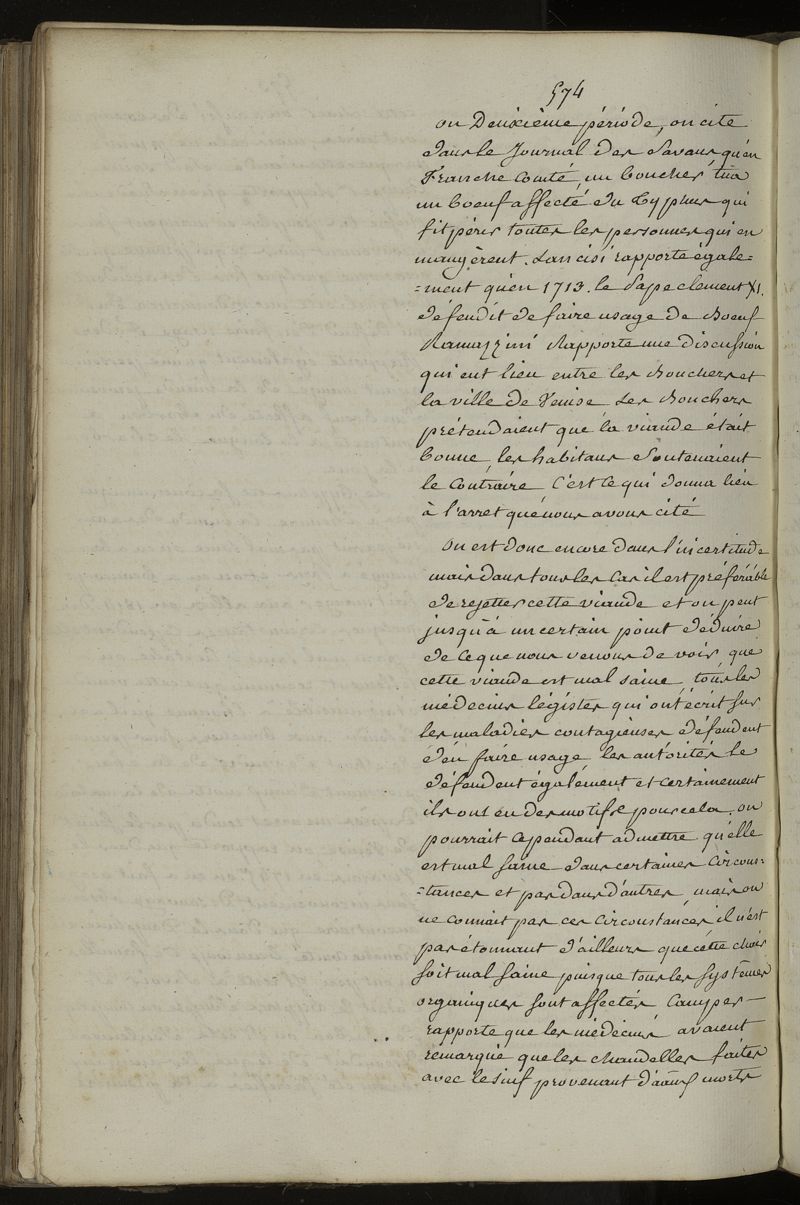 574
ou Deuxième période, on cite
dans le Journal des Savans qu'en
Franche Comté, un boucher tua
un boeuf affecté du typhus qui
fit périr toutes les personnes qui en
mangèrent. Lancisi rapporte égale=
=ment qu'en 1713. le Pape clement XI.
défendit de faire usage de Boeuf
Ramazzini Rapporte une discussion
qui eut lieu entre les Bouchers et
la ville de Venise Les Bouchers
prétendaient que la viande était
bonne, les habitans Soutenaient
le Contraire C'est ce qui donna lieu
à l'arret que nous avons cité
On est donc encore dans l'incertitude
mais dans tous les cas il est préférable
de rejetter cette viande et on peut
jusqu'à un certain point déduire
de ce que nous venons de voir, que
cette viande est mal saine, tous les
médecins légistes qui ont écrit sur
les maladies contagieuses défendent
d'en faire usage les autorités le
défendent également et certainement
ils ont eu des motifs pour cela. on
pourrait cependant admettre qu'elle
est mal saine dans certaines circons=
=tances et pas dans d'autres, mais on
ne connait pas ces circonstances il n'est
pas étonnant d'ailleurs que cette chair
soit mal saine puisque tous les systêmes
organiques sont affectés Camper
rapporte que les médecins avaient
remarqué que les chandelles faites
avec le suif provenant d' morts